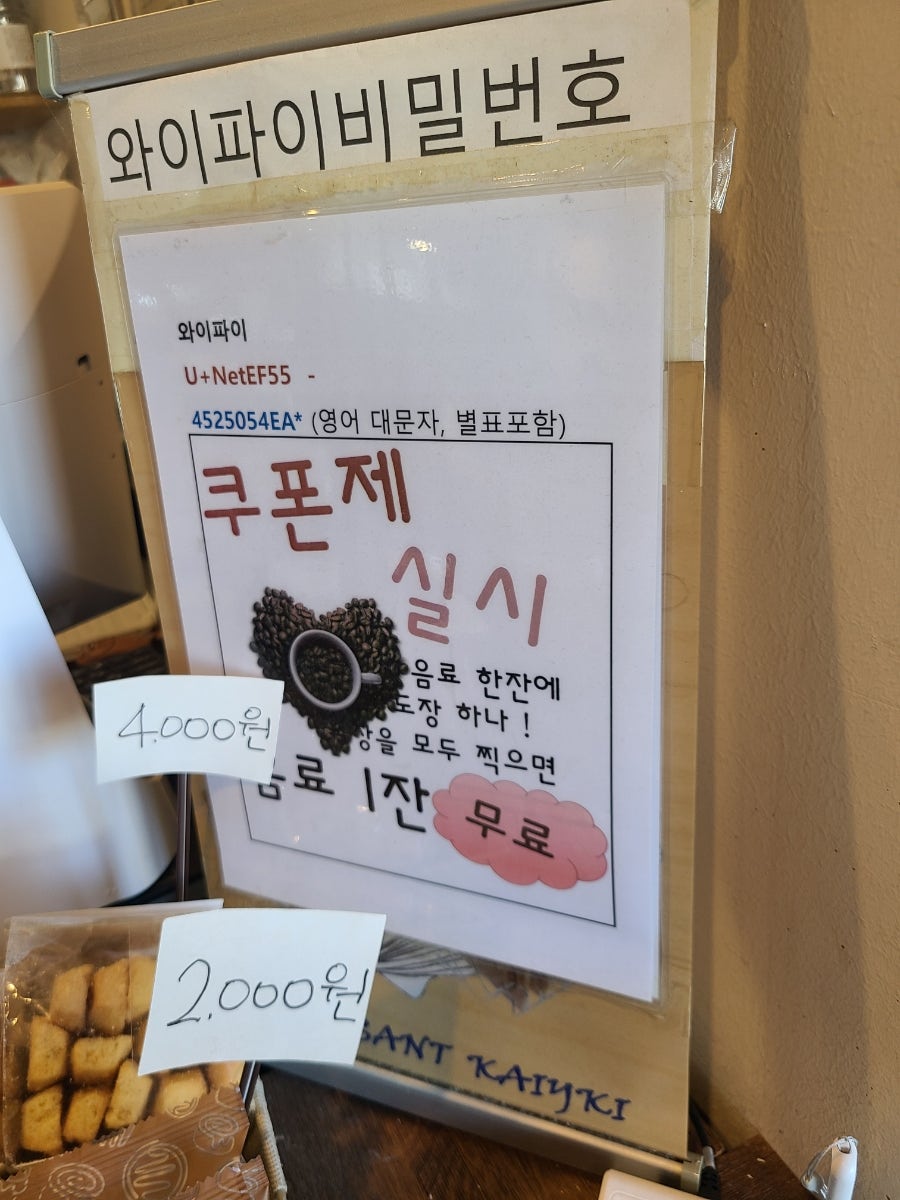 와이파이비밀번호
와이파이
U+NetEF55 -
4525054EA* (영어 대문자, 별표포함)
쿠폰제
실시
음료 한잔에
도장 하나 !
을 모두 찍으면
음료 1잔 무료
4.000원
2.000원
KAIYKI